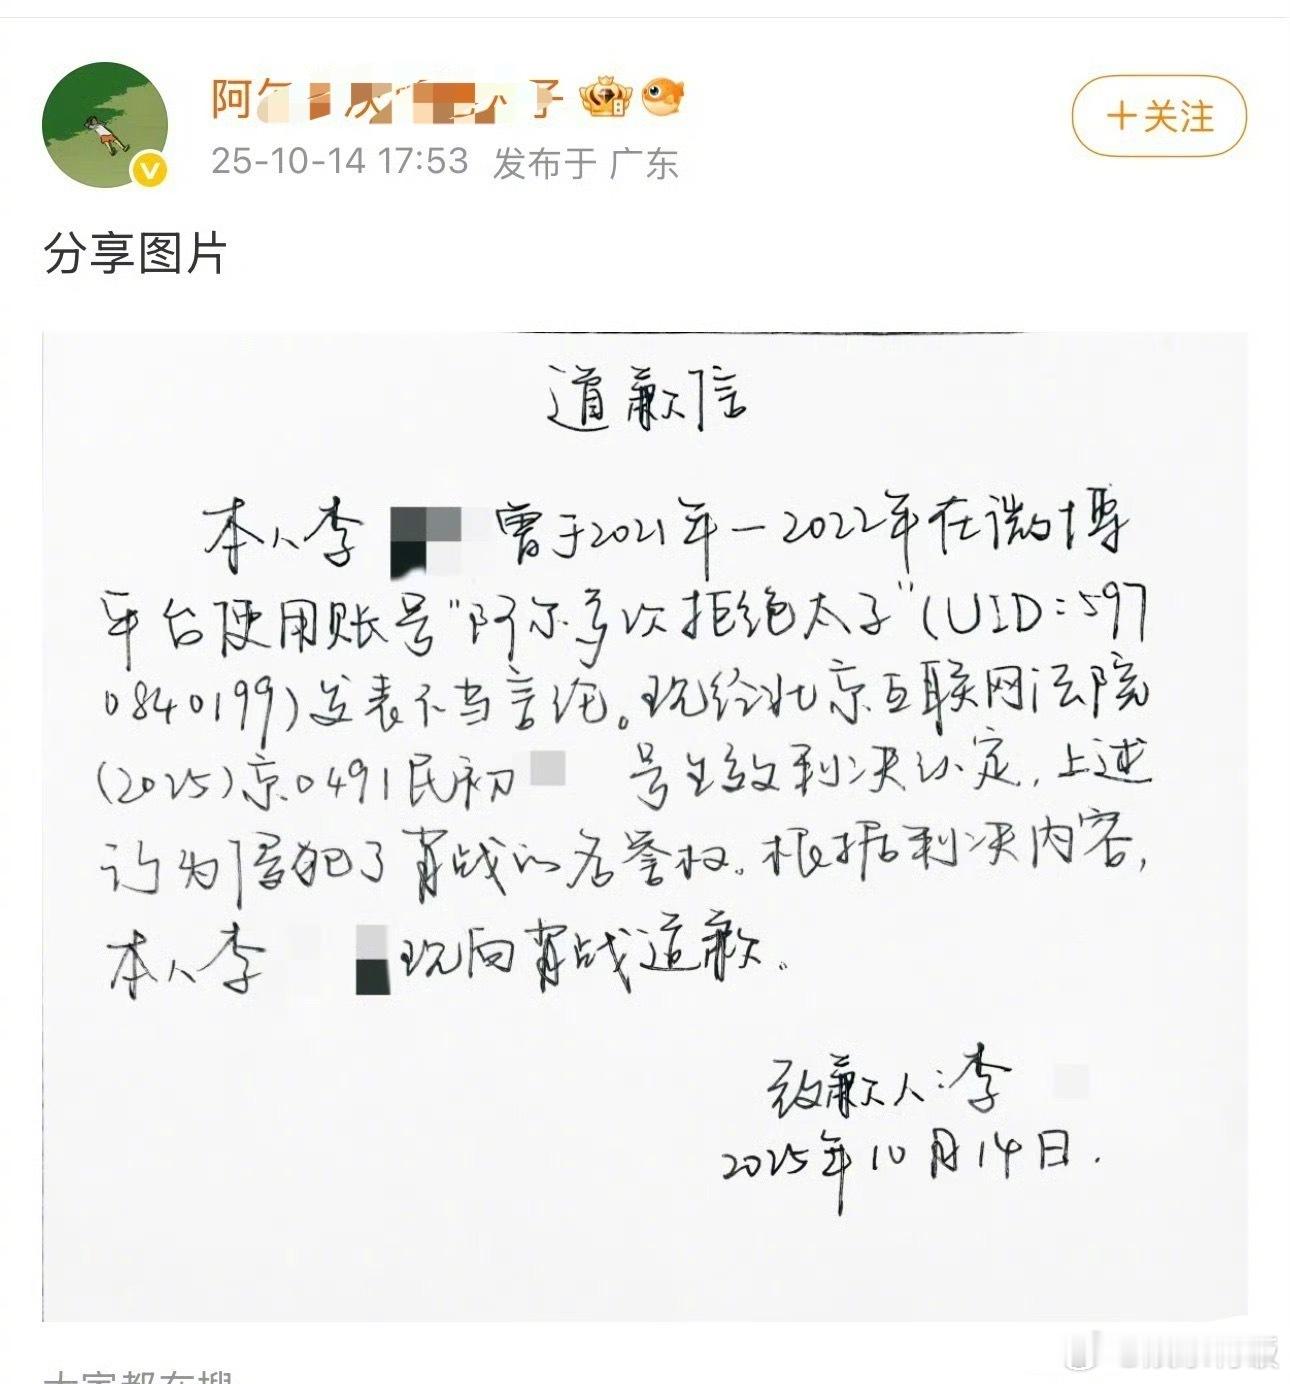 阿
子
25-10-14 17:53 发布于 广东
+关注
分享图片
道歉信
本人李 曾于2021年－2022年在微博
平台使用账号"阿尔多次拒绝太子"(UID:597
0840199)发表不当言论。现经北京互联网法院
(2025)京0491民初 号生效判决认定,上述
行为侵犯了肖战的名誉权。根据判决内容,
本人李 现向肖战道歉。
致歉人:李
2025年10月14日.
大家都在搜